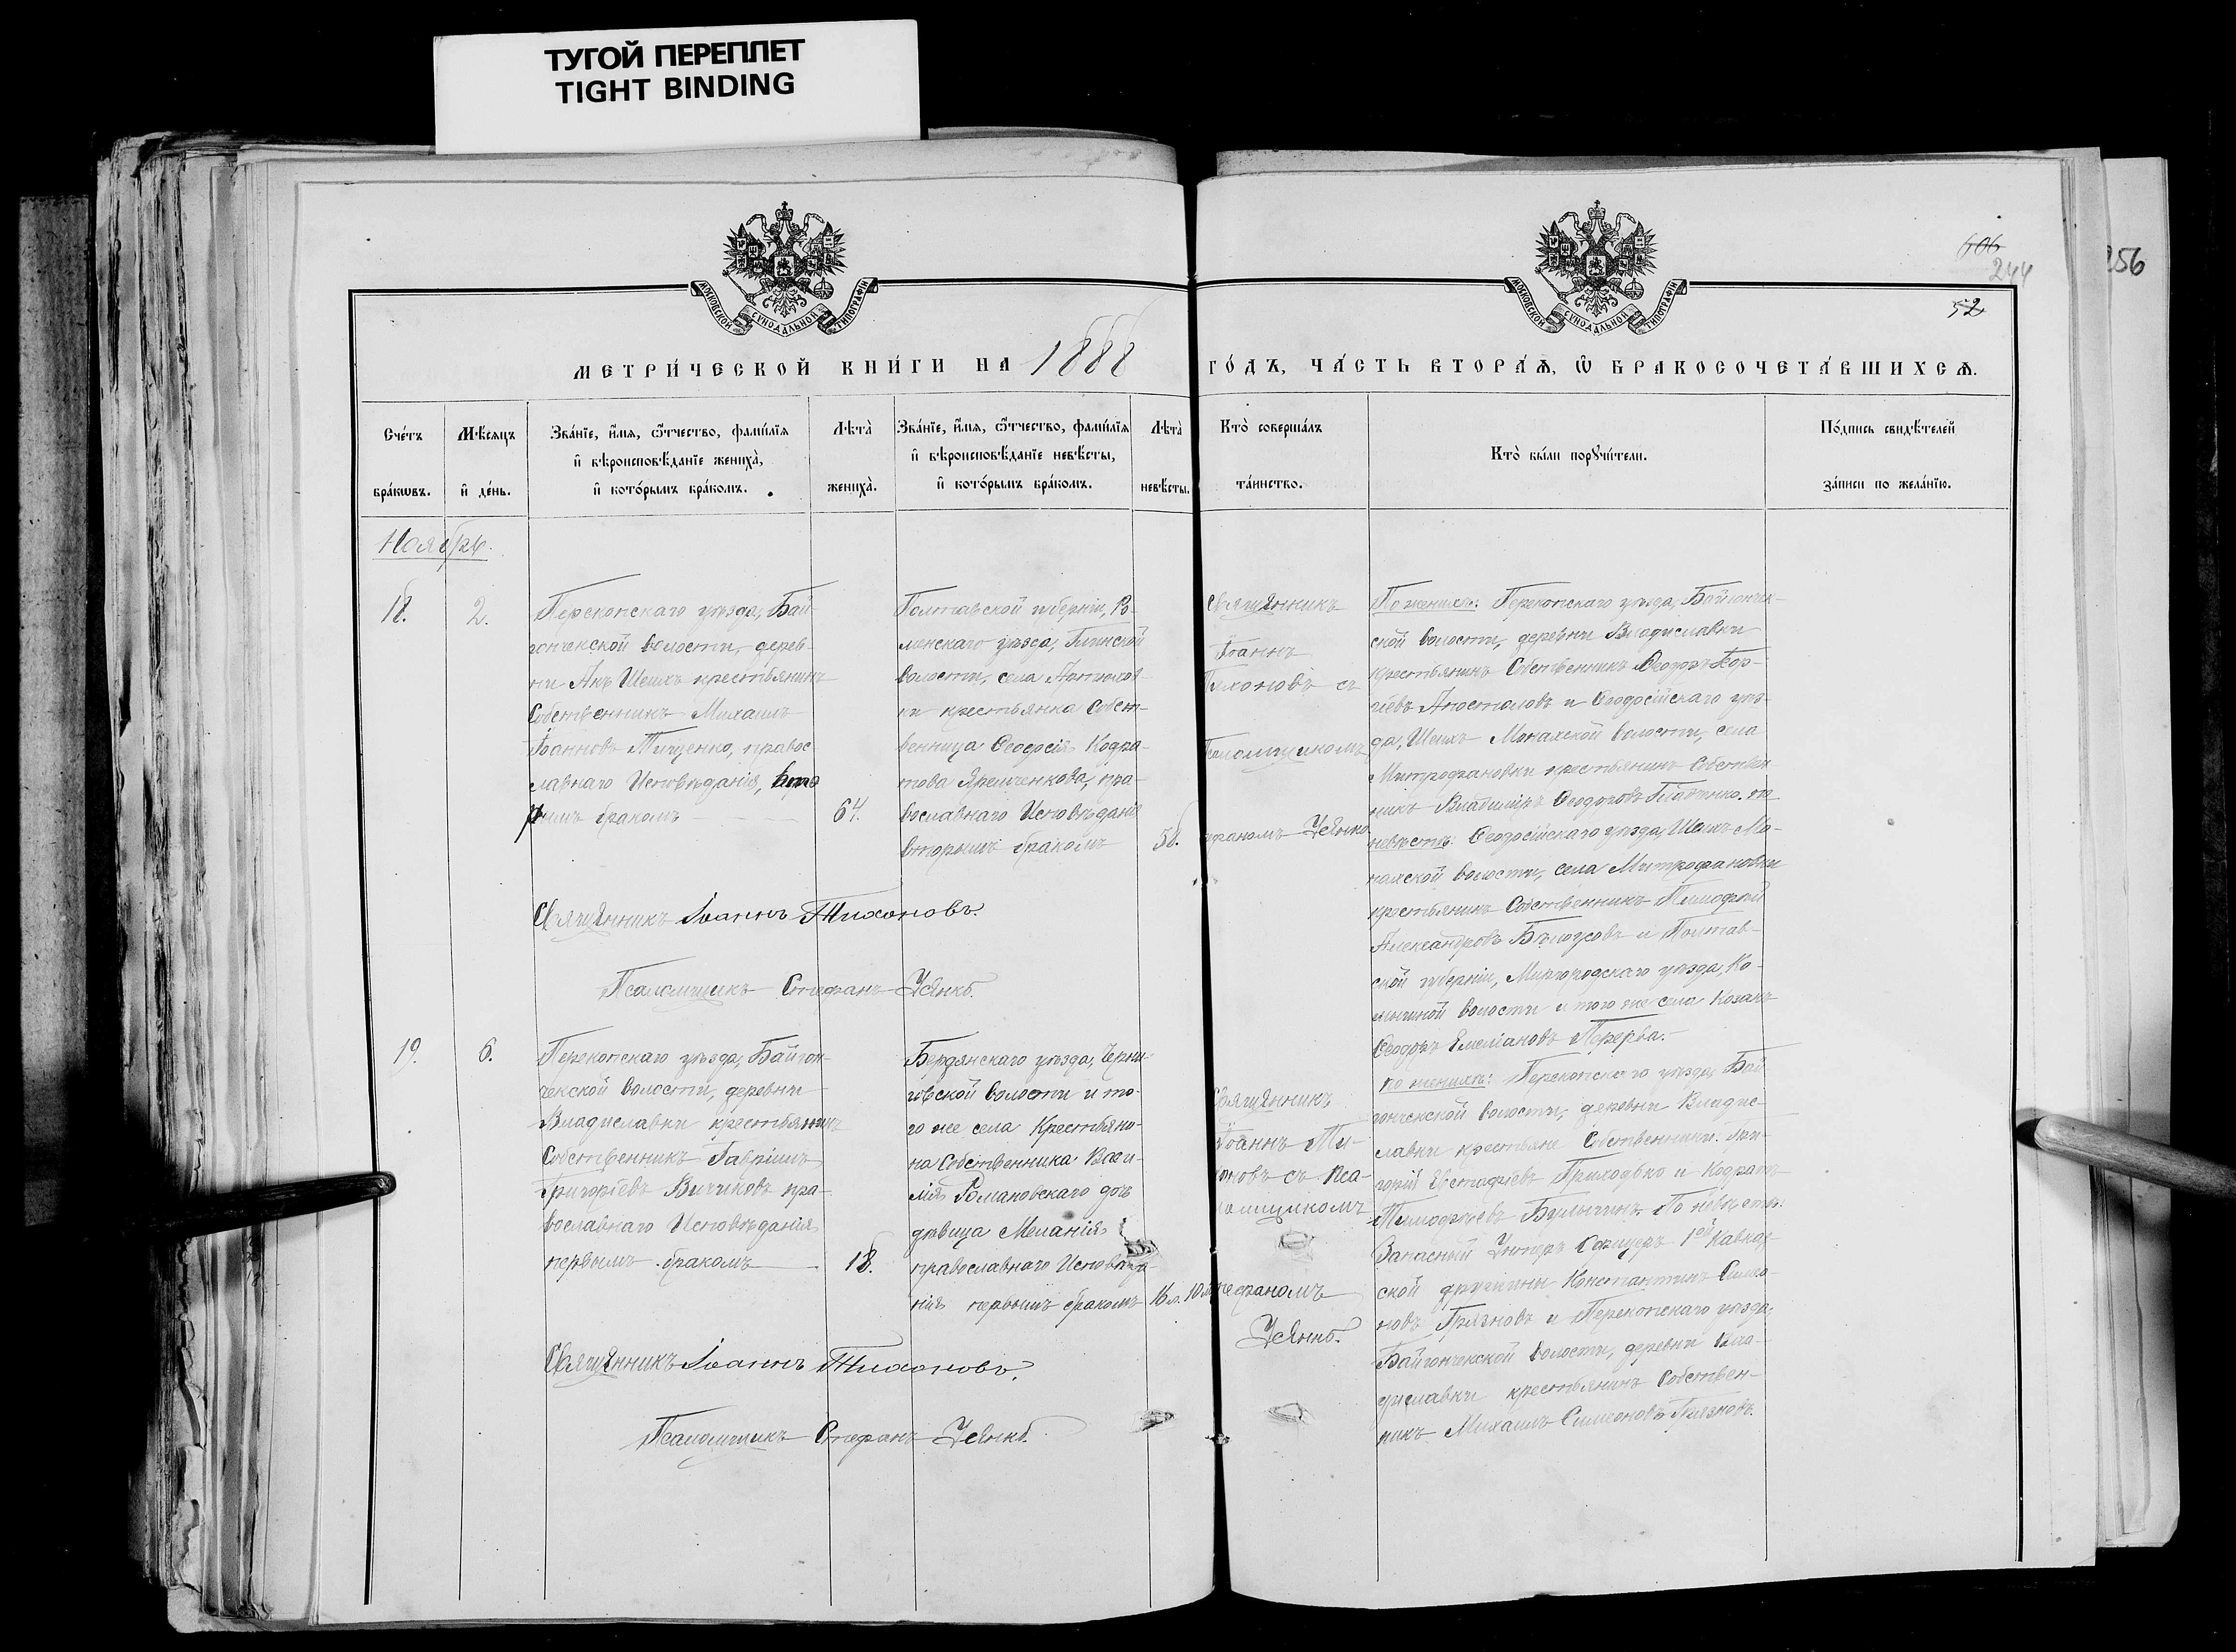 ТУГОЙ ПЕРЕПЛЕТ
TIGHT BINDING
МОСКОВСКОЙ СѴНОДАЛЬНОЙ ТИПОГРАФІИ
МОСКОВСКОЙ СѴНОДАЛЬНОЙ ТИПОГРАФІИ
606
244
256
52
МЕТРИ́ЧЕСКОЙ КНИ́ГИ НА 1888 ГО́ДЪ, ЧА́СТЬ ВТОРА́Ѧ, Ѡ҆ БРАКОСОЧЕТА́ВШИХСѦ.
Сче́тъ
бра́кѡвъ.
Мѣ́сяцъ
и҆ де́нь.
Зва́нїе, и҆́мѧ, ѻ҆́тчество, фами́лїѧ
и҆ вѣроисповѣ́данїе жениха̀,
и҆ кото́рымъ бра́комъ.
Лѣта̀
жениха̀.
Зва́нїе, и҆́мѧ, ѻ҆́тчество, фами́лїѧ
и҆ вѣроисповѣ́данїе невѣ́сты,
и҆ кото́рымъ бра́комъ.
Лѣта̀
невѣ́сты.
Кто̀ соверша́лъ
та́инство.
Кто̀ бы́ли порꙋчи́тели.
По́дпись свидѣ́телей
за́писи по жела́нїю.
Ноябрь.
18.
2.
Перекопскаго уѣзда, Бай-
гончекской волости, дерев-
ни Акъ Шеихъ крестьянинъ
Собственникъ Михаилъ
Іоанновъ Тищенко, правос
лавнаго Исповѣданія, вто
рымъ бракомъ
64.
Полтавской губерніи, Ро-
менскаго уѣзда, Глинской
волости, села
ки крестьянка Собст-
венница Ѳеодосія Кодра-
това Яремченкова, пра-
вославнаго Исповѣданія
вторымъ бракомъ
58.
Священникъ
Іоаннъ
Тихоновъ съ
Псаломщикомъ
Стефаномъ Усенко
По женихѣ: Перекопскаго уѣзда, Байгончек-
ской волости, деревни Владиславки
крестьянинъ Собственникъ Ѳеодоръ Геор-
гіевъ Апостоловъ и Ѳеодосійскаго уѣз-
да, Шеихъ Монахской волости, села
Митрофановки крестьянинъ Собствен
никъ Владиміръ Ѳеодоровъ по
невѣстѣ: Ѳеодосійскаго уѣзда, Шеихъ Мо-
нахской волости, села Митрофановки
крестьянинъ Собственникъ Тимофей
Александровъ и Полтав-
ской губерніи, Миргородскаго уѣзда, Ко-
мышной волости и того же села Козакъ
Ѳеодоръ Емеліановъ Перерва.
Священникъ Іоаннъ Тихоновъ.
Псаломщикъ Стефанъ Усенко.
19.
6.
Перекопскаго уѣзда, Байгон-
чекской волости, деревни
Владиславки крестьянинъ
Собственникъ Гавріилъ
Григоріевъ Вичиковъ пра-
вославнаго Исповѣданія
первымъ бракомъ
18.
Бердянскаго уѣзда, Черни-
говской волости и то-
го же села Крестьяни-
на Собственника Васи-
лія Романовскаго дочь
дѣвица Меланія
православнаго Исповѣда-
нія первымъ бракомъ
16 л. 10 м.
Священникъ
Іоаннъ Ти-
хоновъ съ Пса-
ломщикомъ
Стефаномъ
Усенко.
По женихѣ: Перекопскаго уѣзда, Бай
гончекской волости, деревни Владис-
лавки крестьяне Собственники: Гри-
горій Евстафіевъ Приходько и Кодратъ
Тимофеевъ Булычинъ. По невѣстѣ:
Запасный Унтеръ Офицеръ 1ой Кавказ-
ской дружины Константинъ Симео-
новъ Грязновъ и Перекопскаго уѣзда,
Байгончекской волости, деревни Вла-
диславки крестьянинъ Собствен-
никъ Михаилъ Симеоновъ Грязновъ.
Священникъ Іоаннъ Тихоновъ.
Псаломщикъ Стефанъ Усенко.